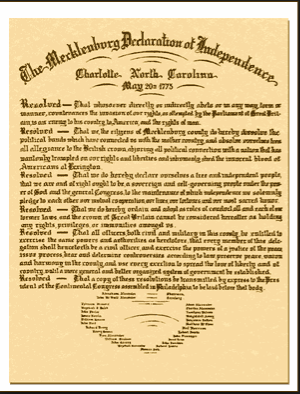 The Mecklenburg Declaration of Independence
Charlotte, North Carolina
May 20th 1775
Resolved — That whosoever directly or indirectly abets or in any way, form or
manner, countenances the invasion of our rights, as attempted by the Parliament of Great Brit-
ain, is an enemy to his country, to America, and the rights of men.
Resolved — That we, the citizens of Mecklenburg county, do hereby dissolve the
political bands which have connected us with the mother country, and absolve ourselves from
all allegiance to the British crown, abjuring all political connection with a nation that has
wantonly trampled on our rights and liberties and inhumanly shed the innocent blood of
Americans at Lexington.
Resolved — That we do hereby declare ourselves a free and independent people,
that we are and of right ought to be a sovereign and self-governing people under the pow-
er of God and the general Congress, to the maintenance of which independence we solemnly
pledge to each other our mutual co-operation, our lives, our fortunes and our most sacred honor.
Resolved — That we do hereby ordain and adopt as rules of conduct all and each of our
former laws, and the crown of Great Britain cannot be considered hereafter as holding
any rights, privileges, or immunities amongst us.
Resolved — That all officers, both civil and military, in this county, be entitled to
exercise the same powers and authorities as heretofore, that every member of this dele-
gation shall henceforth be a civil officer, and exercise the powers of a justice of the peace,
issue process, hear and determine controversies according to law, preserve peace, union
and harmony in the county, and use every exertion to spread the love of liberty and of
country, until a more general and better organized system of government be established.
Resolved — That a copy of these resolutions be transmitted by express to the Pres-
ident of the Continental Congress assembled in Philadelphia, to be laid before that body.